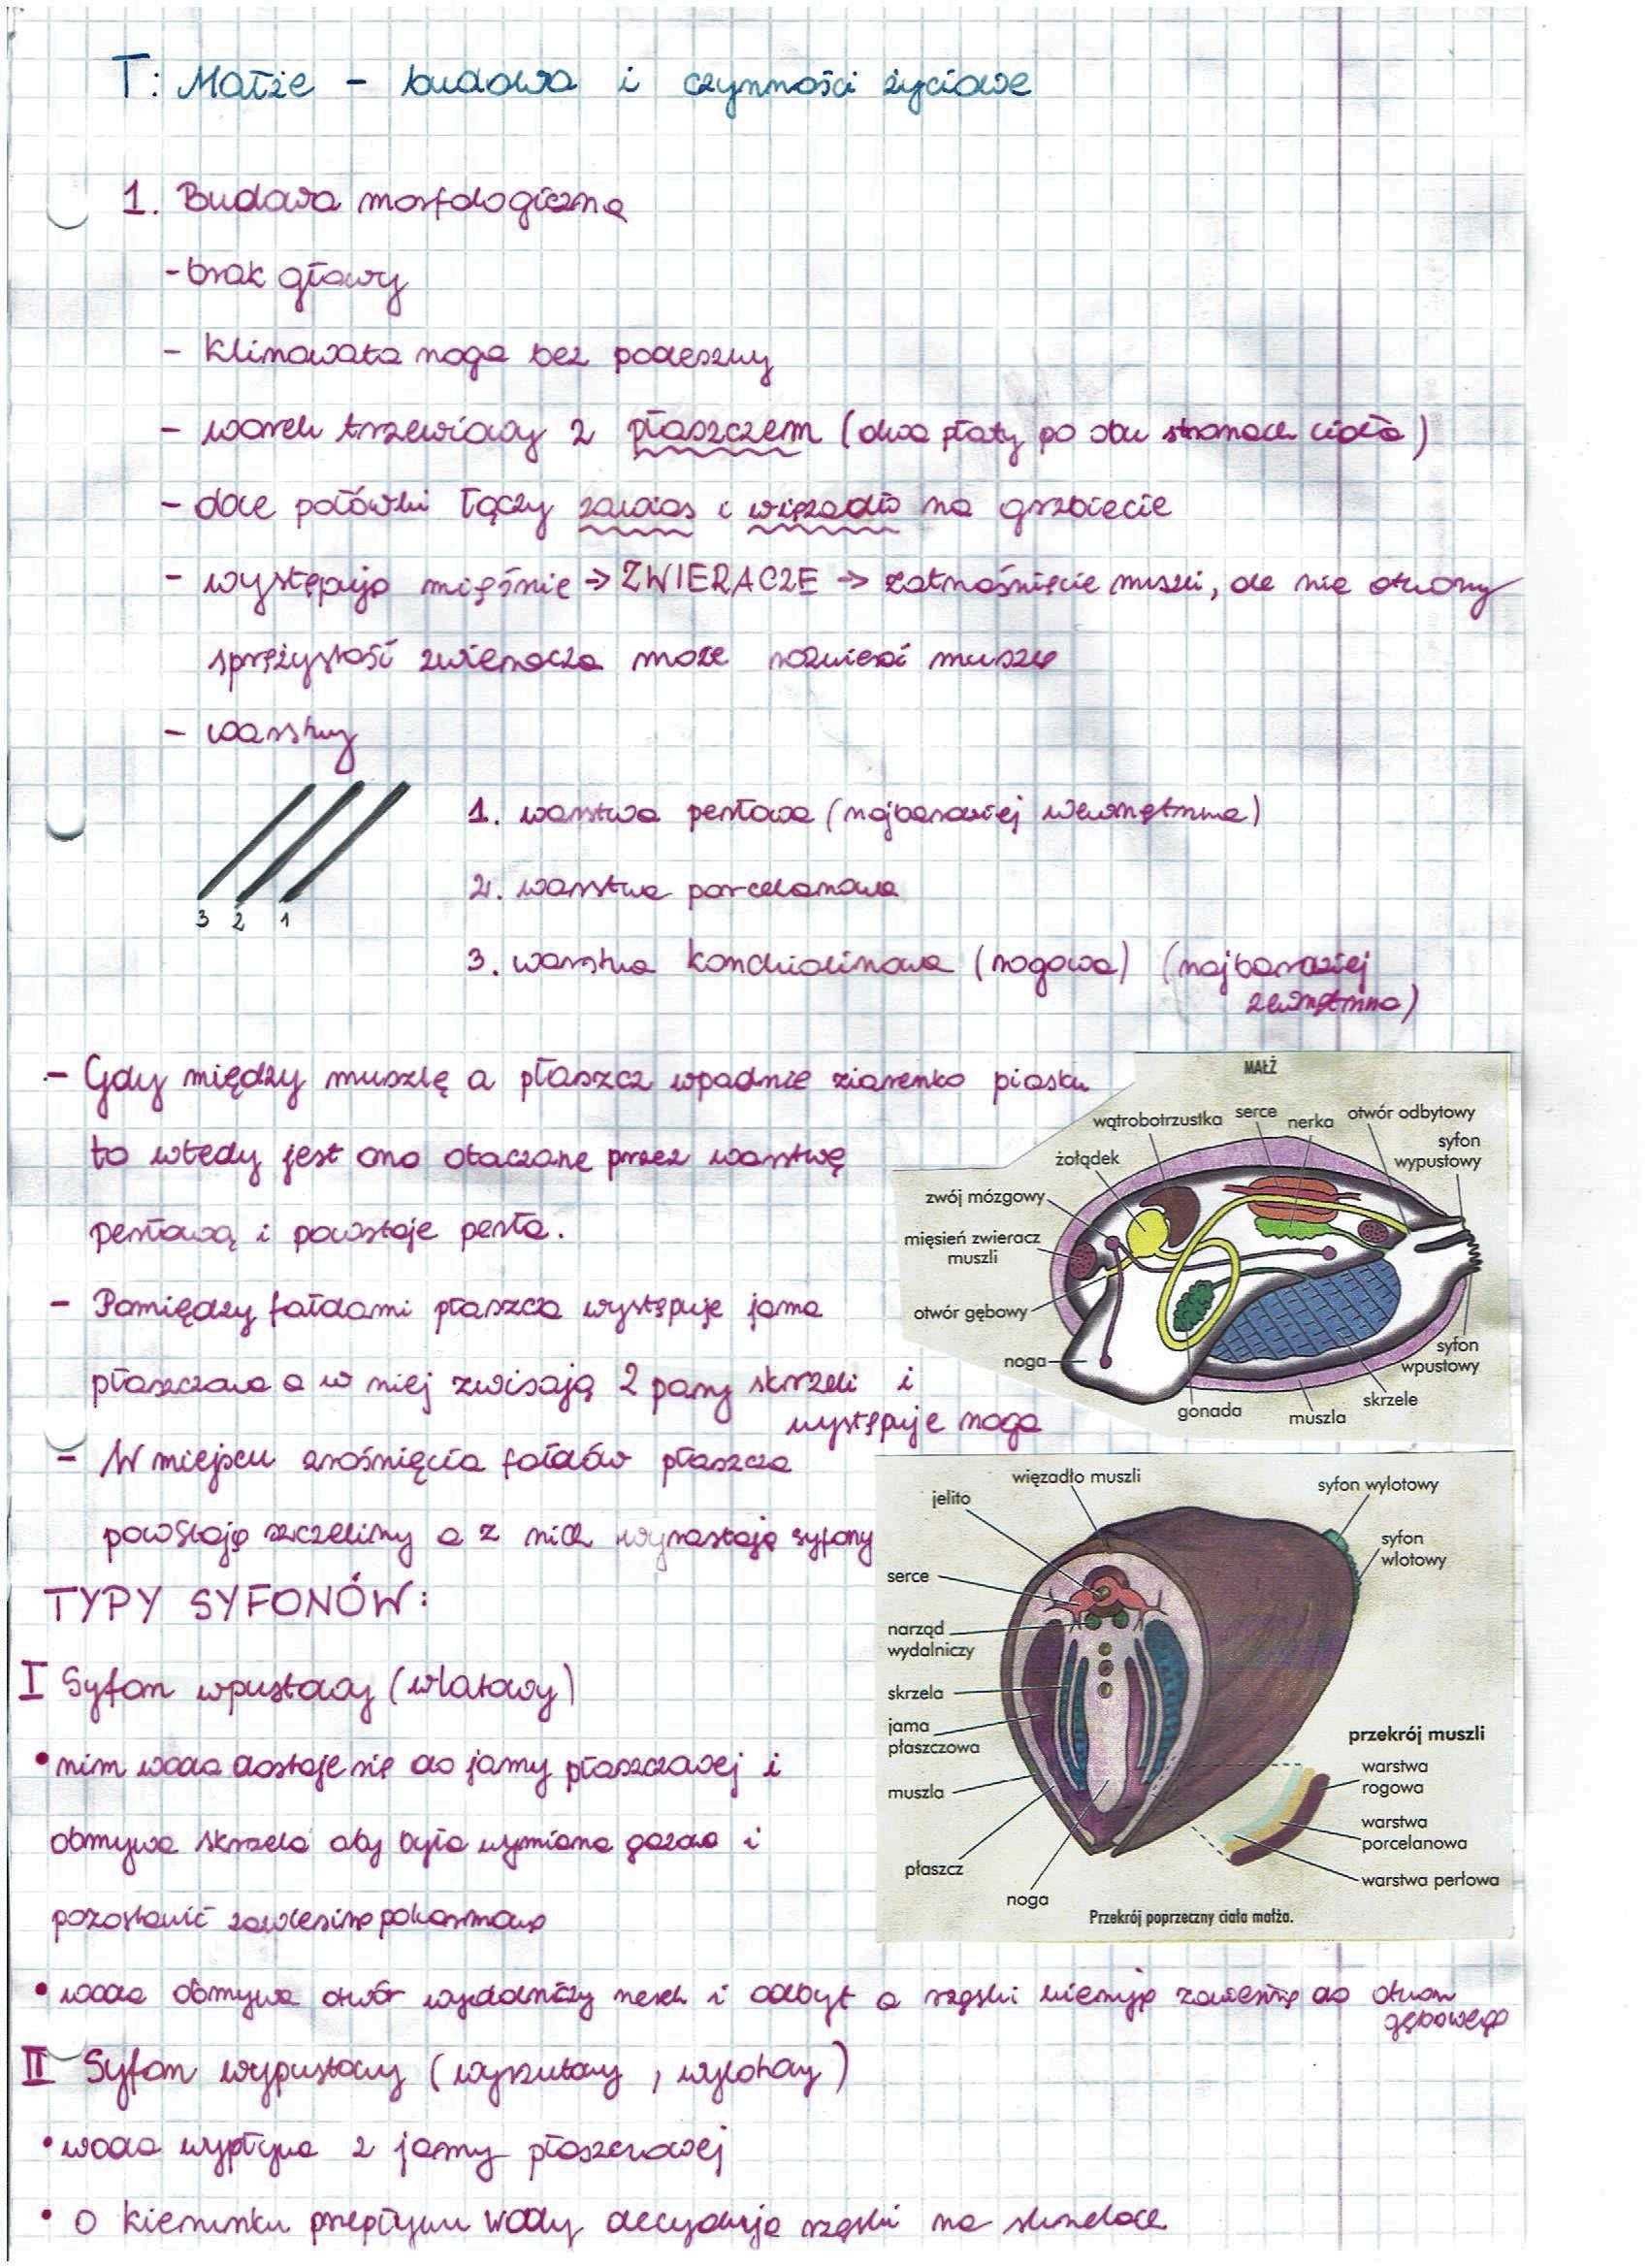 T: Małże - budowa i czynności życiowe
1. Budowa morfologiczna
- brak głowy
- klinowata noga bez podeszwy
- worek trzewiowy z płaszczem (dwa płaty po obu stronach ciała)
- dwie połówki łączy zawias i więzadło na grzbiecie
- występują mięśnie → ZWIERACZE → zatrzaśnięcie muszli, ale nie otwory
sprężystość zwieracza może rozwierać muszlę
- warstwy
3 2 1
1. warstwa perłowa (najbardziej wewnętrzna)
2. warstwa porcelanowa
3. warstwa konchiolinowa (rogowa) (najbardziej
zewnętrzna)
- Gdy między muszlę a płaszcz wpadnie ziarenko piasku
to wtedy jest ono otaczane przez warstwę
perłową i powstaje perła.
- Pomiędzy fałdami płaszcza występuje jama
płaszczowa a w niej zwisają 2 pary skrzeli i
występuje noga
- W miejscu zrośnięcia fałdów płaszcza
powstają szczeliny a z nich wyrastają syfony
MAŁŻ
wątrobotrzustka
serce
nerka
otwór odbytowy
syfon
wypustowy
żołądek
zwój mózgowy
mięsień zwieracz
muszli
otwór gębowy
noga
gonada
muszla
skrzele
syfon
wpustowy
TYPY SYFONÓW:
I Syfon wpustowy (wlotowy)
• nim woda dostaje się do jamy płaszczowej i
obmywa skrzela aby była wymiana gazowa i
pozostawić zawiesinę pokarmową
• woda obmywa otwór wydalniczy nerek i odbyt a rzęski kierują zawiesinę do otworu
gębowego
więzadło muszli
jelito
syfon wylotowy
syfon
wlotowy
serce
narząd
wydalniczy
skrzela
jama
płaszczowa
muszla
płaszcz
noga
przekrój muszli
warstwa
rogowa
warstwa
porcelanowa
warstwa perłowa
Przekrój poprzeczny ciała małża.
II Syfon wypustowy (wyrzutowy, wylotowy)
• woda wypływa z jamy płaszczowej
• o kierunku przepływu wody decydują rzęski na skrzelach